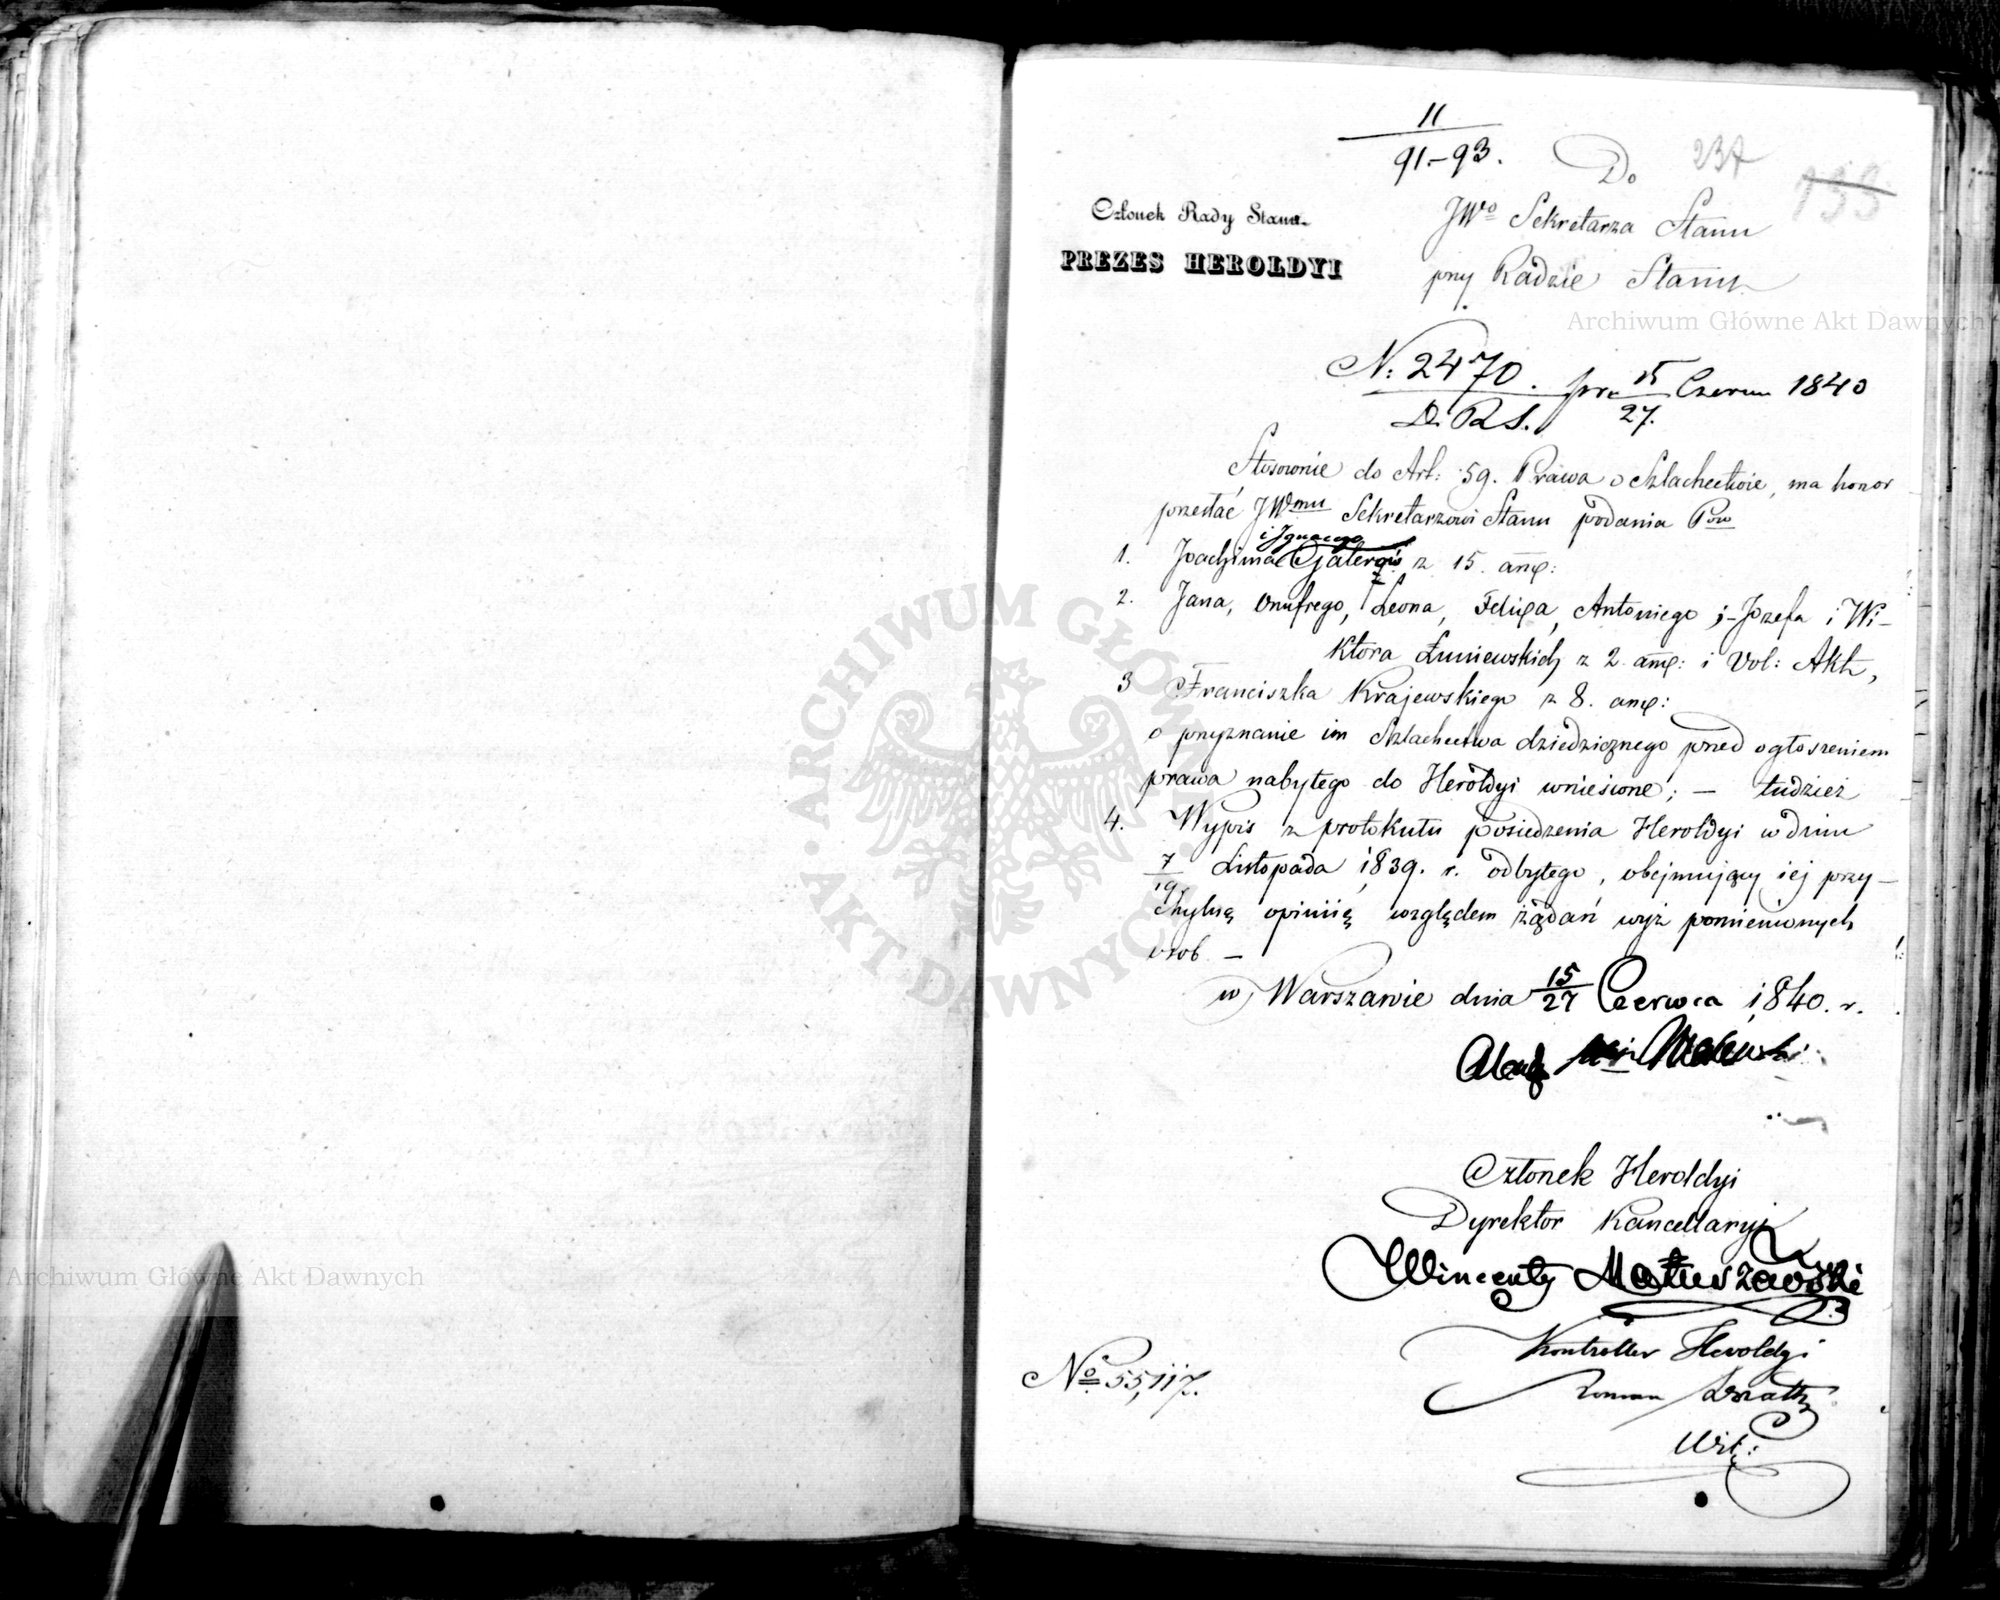 11
91.-93.
237
133
Do
JWo Sekretarza Stanu
przy Radzie Stanu.
Członek Rady Stanu.
PREZES HEROLDYI
N: 2470.
D. R S.
pr. 15/27. Czerw 1840
Stosownie do Art: 59. Prawa o Szlachectwie, ma honor
przesłać JWmu Sekretarzowi Stanu podania Pow
i Ignacego
1. Joachima z 15. anx:
2. Jana, Onufrego, Leona, Felixa, Antoniego i Jozefa i Wi-
ktora Łuniewskich z 2. anx: i Vol: Akt,
3 Franciszka Krajewskiego z 8. anx:
o przyznanie im Szlachectwa dziedzicznego przed ogłoszeniem
prawa nabytego do Heroldyi wniesione; — tudzież
4. Wypis z protokułu posiedzenia Heroldyi w dniu
7/19 Listopada 1839. r. odbytego, obejmujący iej przy-
chylną opiniię względem żądań wyż pomienionych
osob. —
w Warszawie dnia 15/27 Czerwca 1840. r.
Walewski
Członek Heroldyi
Dyrektor Kancellaryi
Wincenty Matuszewski
Kontroller Heroldyi
Roman
No 55,117.
Archiwum Główne Akt Dawnych
Archiwum Główne Akt Dawnych
ARCHIWUM GŁÓWNE AKT DAWNYCH